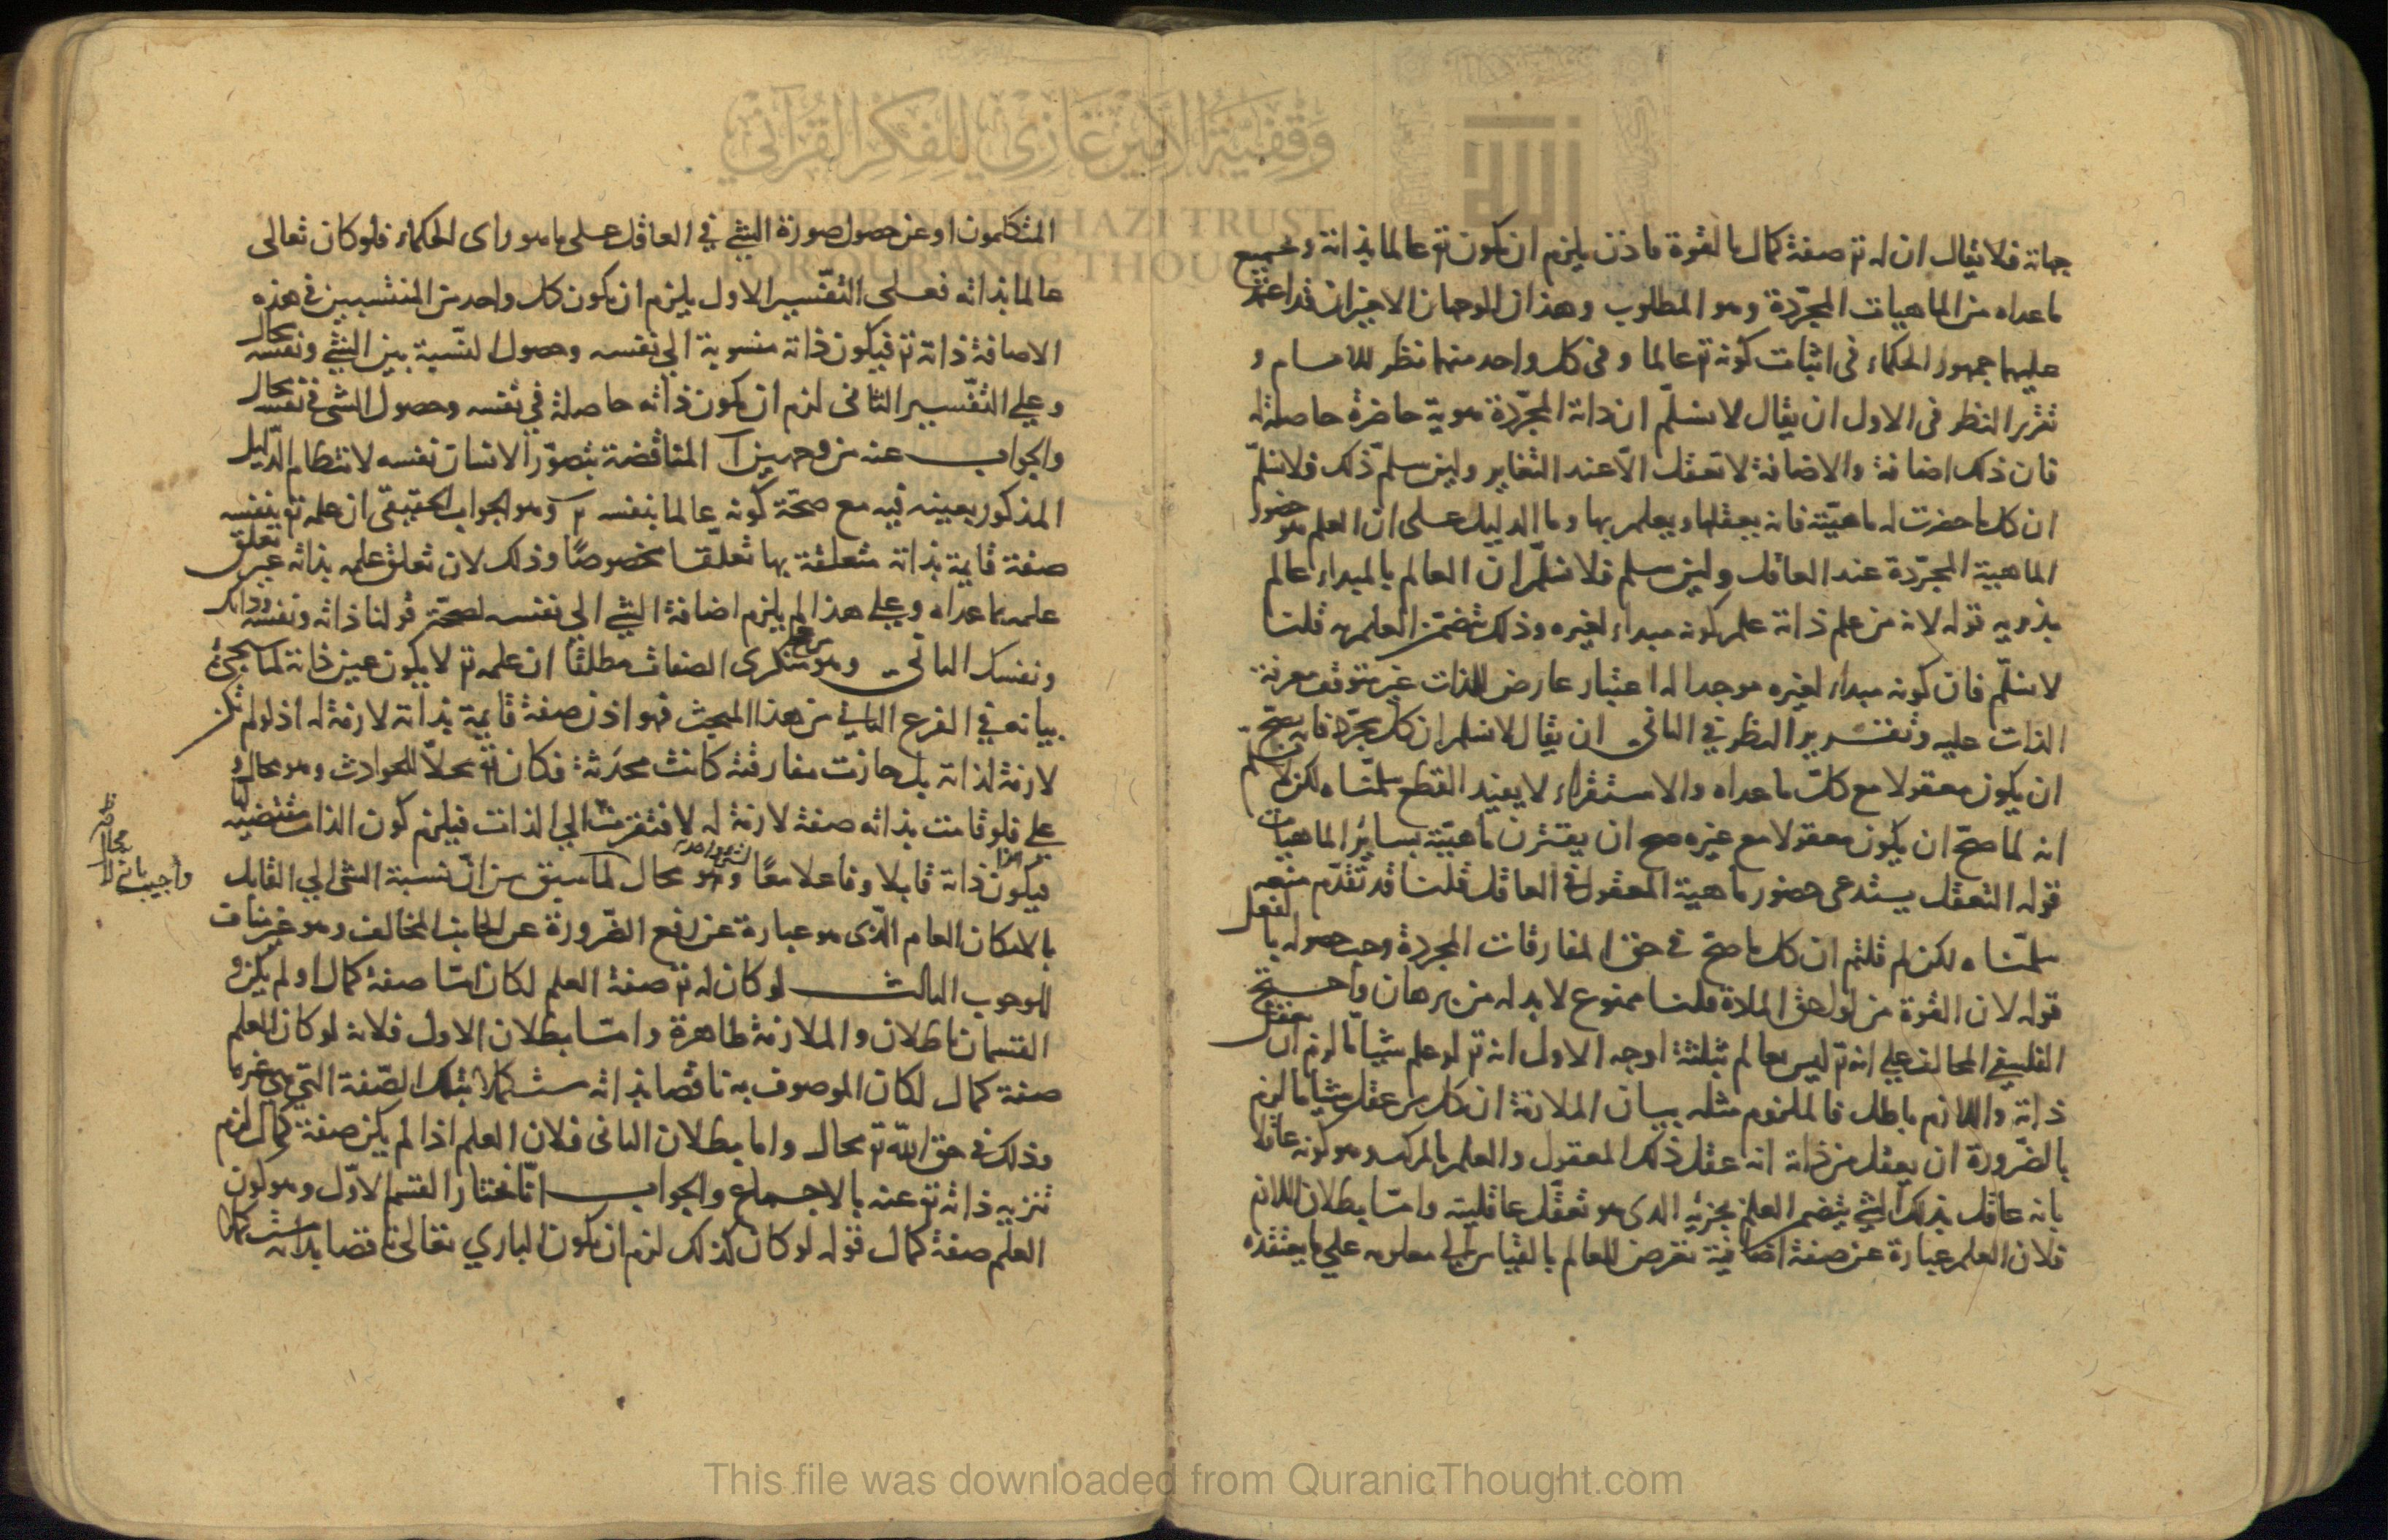 جهاته فلا يقال ان له تع صفة كمال بالقوة فاذن يلزم ان يكون تع عالما بذاته وبجميع
ما عداه من الماهيات المجردة وهو المطلوب وهذان الوجهان الاخيران قد اعتمد
عليهما جمهور الحكماء في اثبات كونه تع عالما وفي كل واحد منهما نظر للامام و
تقرير النظر في الاول ان يقال لا نسلم ان ذاته المجردة هوية حاضرة حاصلة له
فان ذلك اضافة والاضافة لا تعقل الا عند التغاير ولئن سلم ذلك فلا نسلم
ان كل ما حضرت له ماهيته فانه يعقلها ويعلم بها وما الدليل على ان العلم هو حضور
الماهية المجردة عند العاقل ولئن سلم فلا نسلم ان العالم بالمبداء عالم
بذويه قوله لانه من علم ذاته علم كونه مبداء لغيره وذلك يتضمن العلم به قلنا
لا نسلم فان كونه مبداء لغيره موجدا له اعتبار عارض للذات غير متوقف معرفة
الذات عليه وتقرير النظر في الثاني ان يقال لا نسلم ان كل مجرد فانه يصح
ان يكون معقولا مع كل ما عداه والاستقراء لا يفيد القطع سلمناه لكن لا نسلم
انه لما صح ان يكون معقولا مع غيره صح ان يقترن ماهيته بسائر الماهيات
قوله التعقل يستدعي حضور ماهية المعقول في العاقل قلنا قد تقدم منعه
سلمناه لكن لم قلتم ان كل ما صح في حق المفارقات المجردة وجب حصوله بالفعل
قوله لان القوة من لواحق المادة قلنا ممنوع لا بد له من برهان واحتج
الفلسفي المخالف على انه تع ليس بعالم بثلثة اوجه الاول انه تع لو علم شيئا ما لزم ان يعقل
ذاته واللازم باطل فالملزوم مثله بيان الملازمة ان كل من عقل شيئا ما لزم
بالضرورة ان يعقل من ذاته انه عقل ذلك المعقول والعلم بالمركب وهو كونه عاقلا
بانه عاقل بذلك الشئ يتضمن العلم بجزئه الذي هو تعقل عاقليته واما بطلان اللازم
فلان العلم عبارة عن صفة اضافية تعرض للعالم بالقياس الى معلومه على ما يعتقده
المتكلمون او عن حصول صورة الشئ في العاقل على ما هو راى الحكماء فلو كان تعالى
عالما بذاته فعلى التفسير الاول يلزم ان يكون كل واحد من المنتسبين في هذه
الاضافة ذاته تع فيكون ذاته منسوبة الى نفسه وحصول النسبة بين الشئ ونفسه محال
وعلى التفسير الثاني لزم ان يكون ذاته حاصلة في نفسه وحصول الشئ في نفسه محال
والجواب عنه من وجهين آ المناقضة بتصور الانسان نفسه لانتظام الدليل
المذكور بعينه فيه مع صحة كونه عالما بنفسه ب وهو الجواب الحقيقي ان علمه تع بنفسه
صفة قايمة بذاته متعلقة بها تعلقا مخصوصا وذلك لان تعلق علمه بذاته غير تعلق
علمه بما عداه وعلى هذا لم يلزم اضافة الشئ الى نفسه لصحة قولنا ذاته ونفسه وذاتك
ونفسك الثاني وهو منكرى الصفات مطلقا ان علمه تع لا يكون عين ذاته لما سيجئ
بيانه في الفرع الثاني من هذا المبحث فهو اذن صفة قايمة بذاته لازمة له اذ لو لم تكن
لازمة لذاته بل جازت مفارقته كانت محدثة فكان تع محلا للحوادث وهو محال و
على فلو قامت بذاته صفة لازمة له لافتقرت الى الذات فيلزم كون الذات مقتضية لها
فيكون ذاته قابلا وفاعلا معا وهو محال لما سبق من ان نسبة الشئ الى القابل
بالامكان العام الذى هو عبارة عن رفع الضرورة عن الجانب المخالف وهو غير مناف
للوجوب الثالث لو كان له تع صفة العلم لكان اما صفة كمال او لم يكن و
القسمان باطلان والملازمة ظاهرة واما بطلان الاول فلانه لو كان العلم
صفة كمال لكان الموصوف به ناقصا بذاته مستكملا بتلك الصفة التي هي غيرها
وذلك في حق الله تع محال واما بطلان الثاني فلان العلم اذا لم يكن صفة كمال لزم
تنزيه ذاته تع عنه بالاجماع والجواب انا نختار القسم الاول وهو كون
العلم صفة كمال قوله لو كان كذلك لزم ان يكون الباري تعالى ناقصا بذاته مستكملا
واجيب بانه
وقفية الأمير غازي للفكر القرآني
THE PRINCE GHAZI TRUST
FOR QUR'ANIC THOUGHT
This file was downloaded from QuranicThought.com